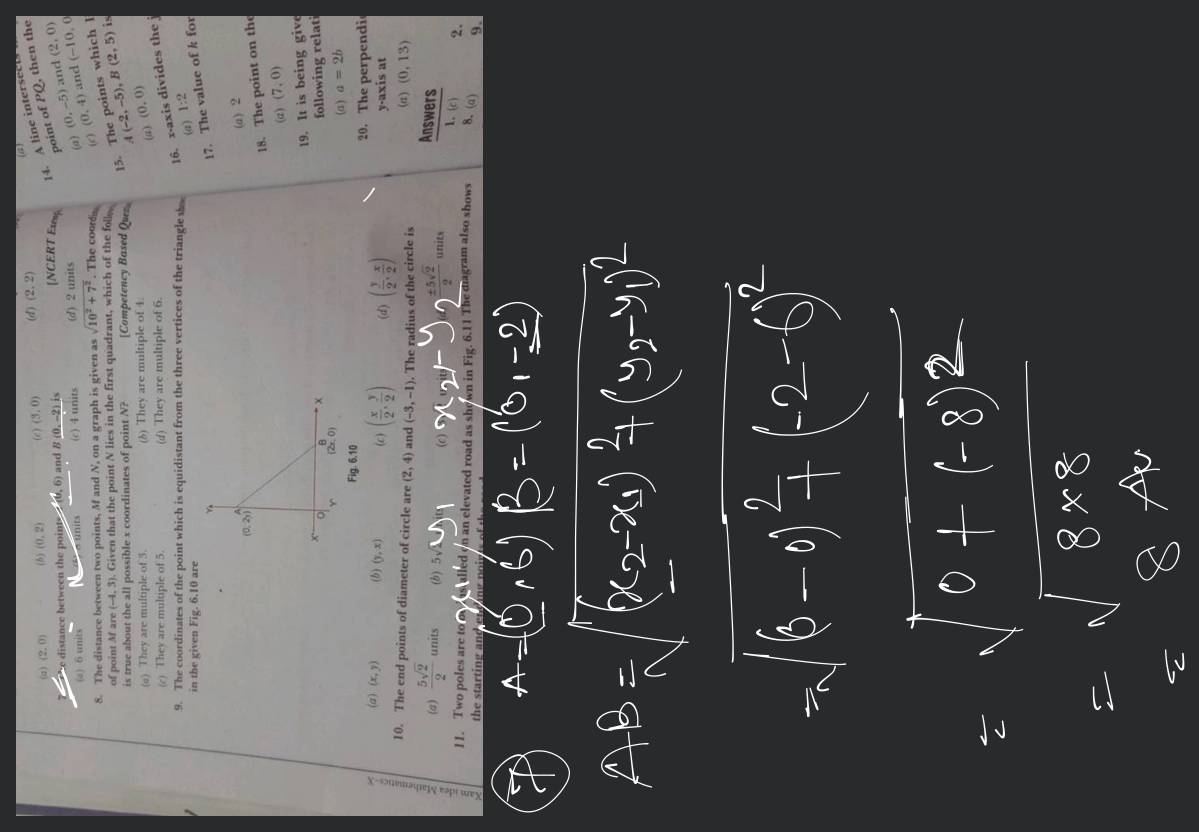 (a) (2, 0)
(b) (0, 2)
(c) (3, 0)
(d) (2, 2)
[NCERT
distance between the 6) and B (0, −2) is
(a) 6 units
units
(c) 4 units
(d) 2 units
8. The distance between two points, M and N, on a graph is given as √10² + 7². The
of point M are (−4, 3). Given that the point N lies in the first quadrant, which of the
is true about the all possible x coordinates of point N? [Competency Based
(a) They are multiple of 3.
(b) They are multiple of 4.
(c) They are multiple of 5.
(d) They are multiple of 6.
9. The coordinates of the point which is equidistant from the three vertices of the triangle
in the given Fig. 6.10 are
Y
A
(0, 2y)
X'
O
B
(2x, 0)
X
Y'
Fig. 6.10
(a) (x, y)
(b) (y, x)
(c) (x/2, y/2)
(d) (y/2, x/2)
10. The end points of diameter of circle are (2, 4) and (−3, −1). The radius of the circle is
(a) 5√2/2 units
(b) 5√
(c)
±5√2/2 units
11. Two poles are to be installed on an elevated road as shown in Fig. 6.11 The diagram also shows
the starting and
Xam idea Mathematics–X
14. A line intersects
point of PQ, then the
(a) (0, −5) and (2, 0)
(c) (0, 4) and (−10, 0
15. The points which
A (−2, −5), B (2, 5) is
(a) (0, 0)
16. x-axis divides the
(a) 1:2
17. The value of k for
(a) 2
18. The point on the
(a) (7, 0)
19. It is being give
following relati
(a) a = 2b
20. The perpendi
y-axis at
(a) (0, 13)
Answers
1. (c)
2.
8. (a)
9.
x₁, y₁
x₂, y₂
7 A = (0, 6) B = (0, −2)
AB = √(x₂−x₁)² + (y₂−y₁)²
= √(0−0)² + (−2−6)²
= √0 + (−8)²
= √8×8
= 8